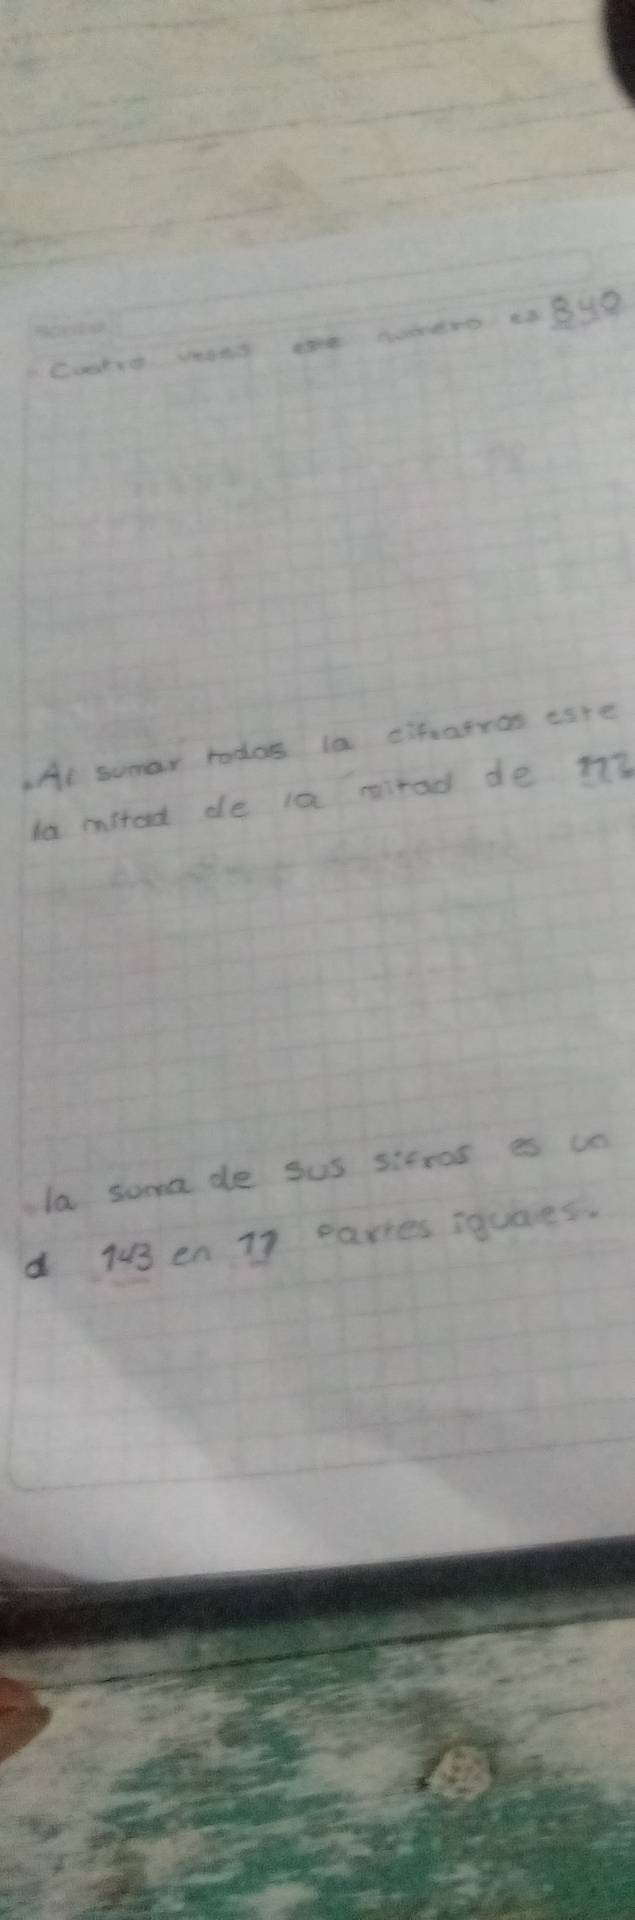 Cuatro veses este número es 840
. Al sumar todos la cifrafras este
la mitad de la mitad de 112
la suma de sus sifras es un
d 143 en 11 Partes iguales.